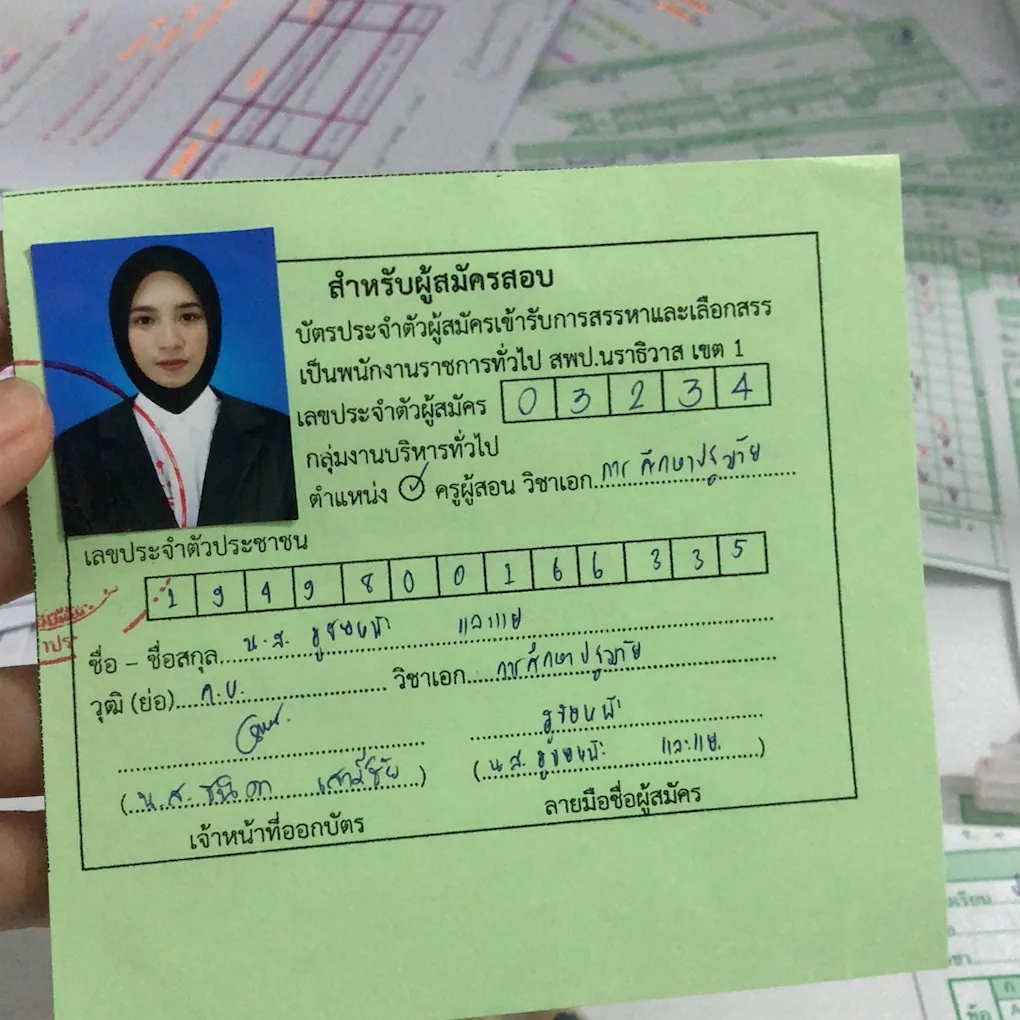 สำหรับผู้สมัครสอบ
บัตรประจำตัวผู้สมัครเข้ารับการสรรหาและเลือกสรร
เป็นพนักงานราชการทั่วไป สพป.นราธิวาส เขต 1
เลขประจำตัวผู้สมัคร 0 3 2 3 4
กลุ่มงานบริหารทั่วไป
ตำแหน่ง ครูผู้สอน วิชาเอก การศึกษาปฐมวัย
เลขประจำตัวประชาชน
1 9 4 9 8 0 0 1 6 6 3 3 5
ชื่อ – ชื่อสกุล น.ส.
วุฒิ (ย่อ) ค.บ. วิชาเอก การศึกษาปฐมวัย
(น.ส. ) (น.ส. )
เจ้าหน้าที่ออกบัตร ลายมือชื่อผู้สมัคร